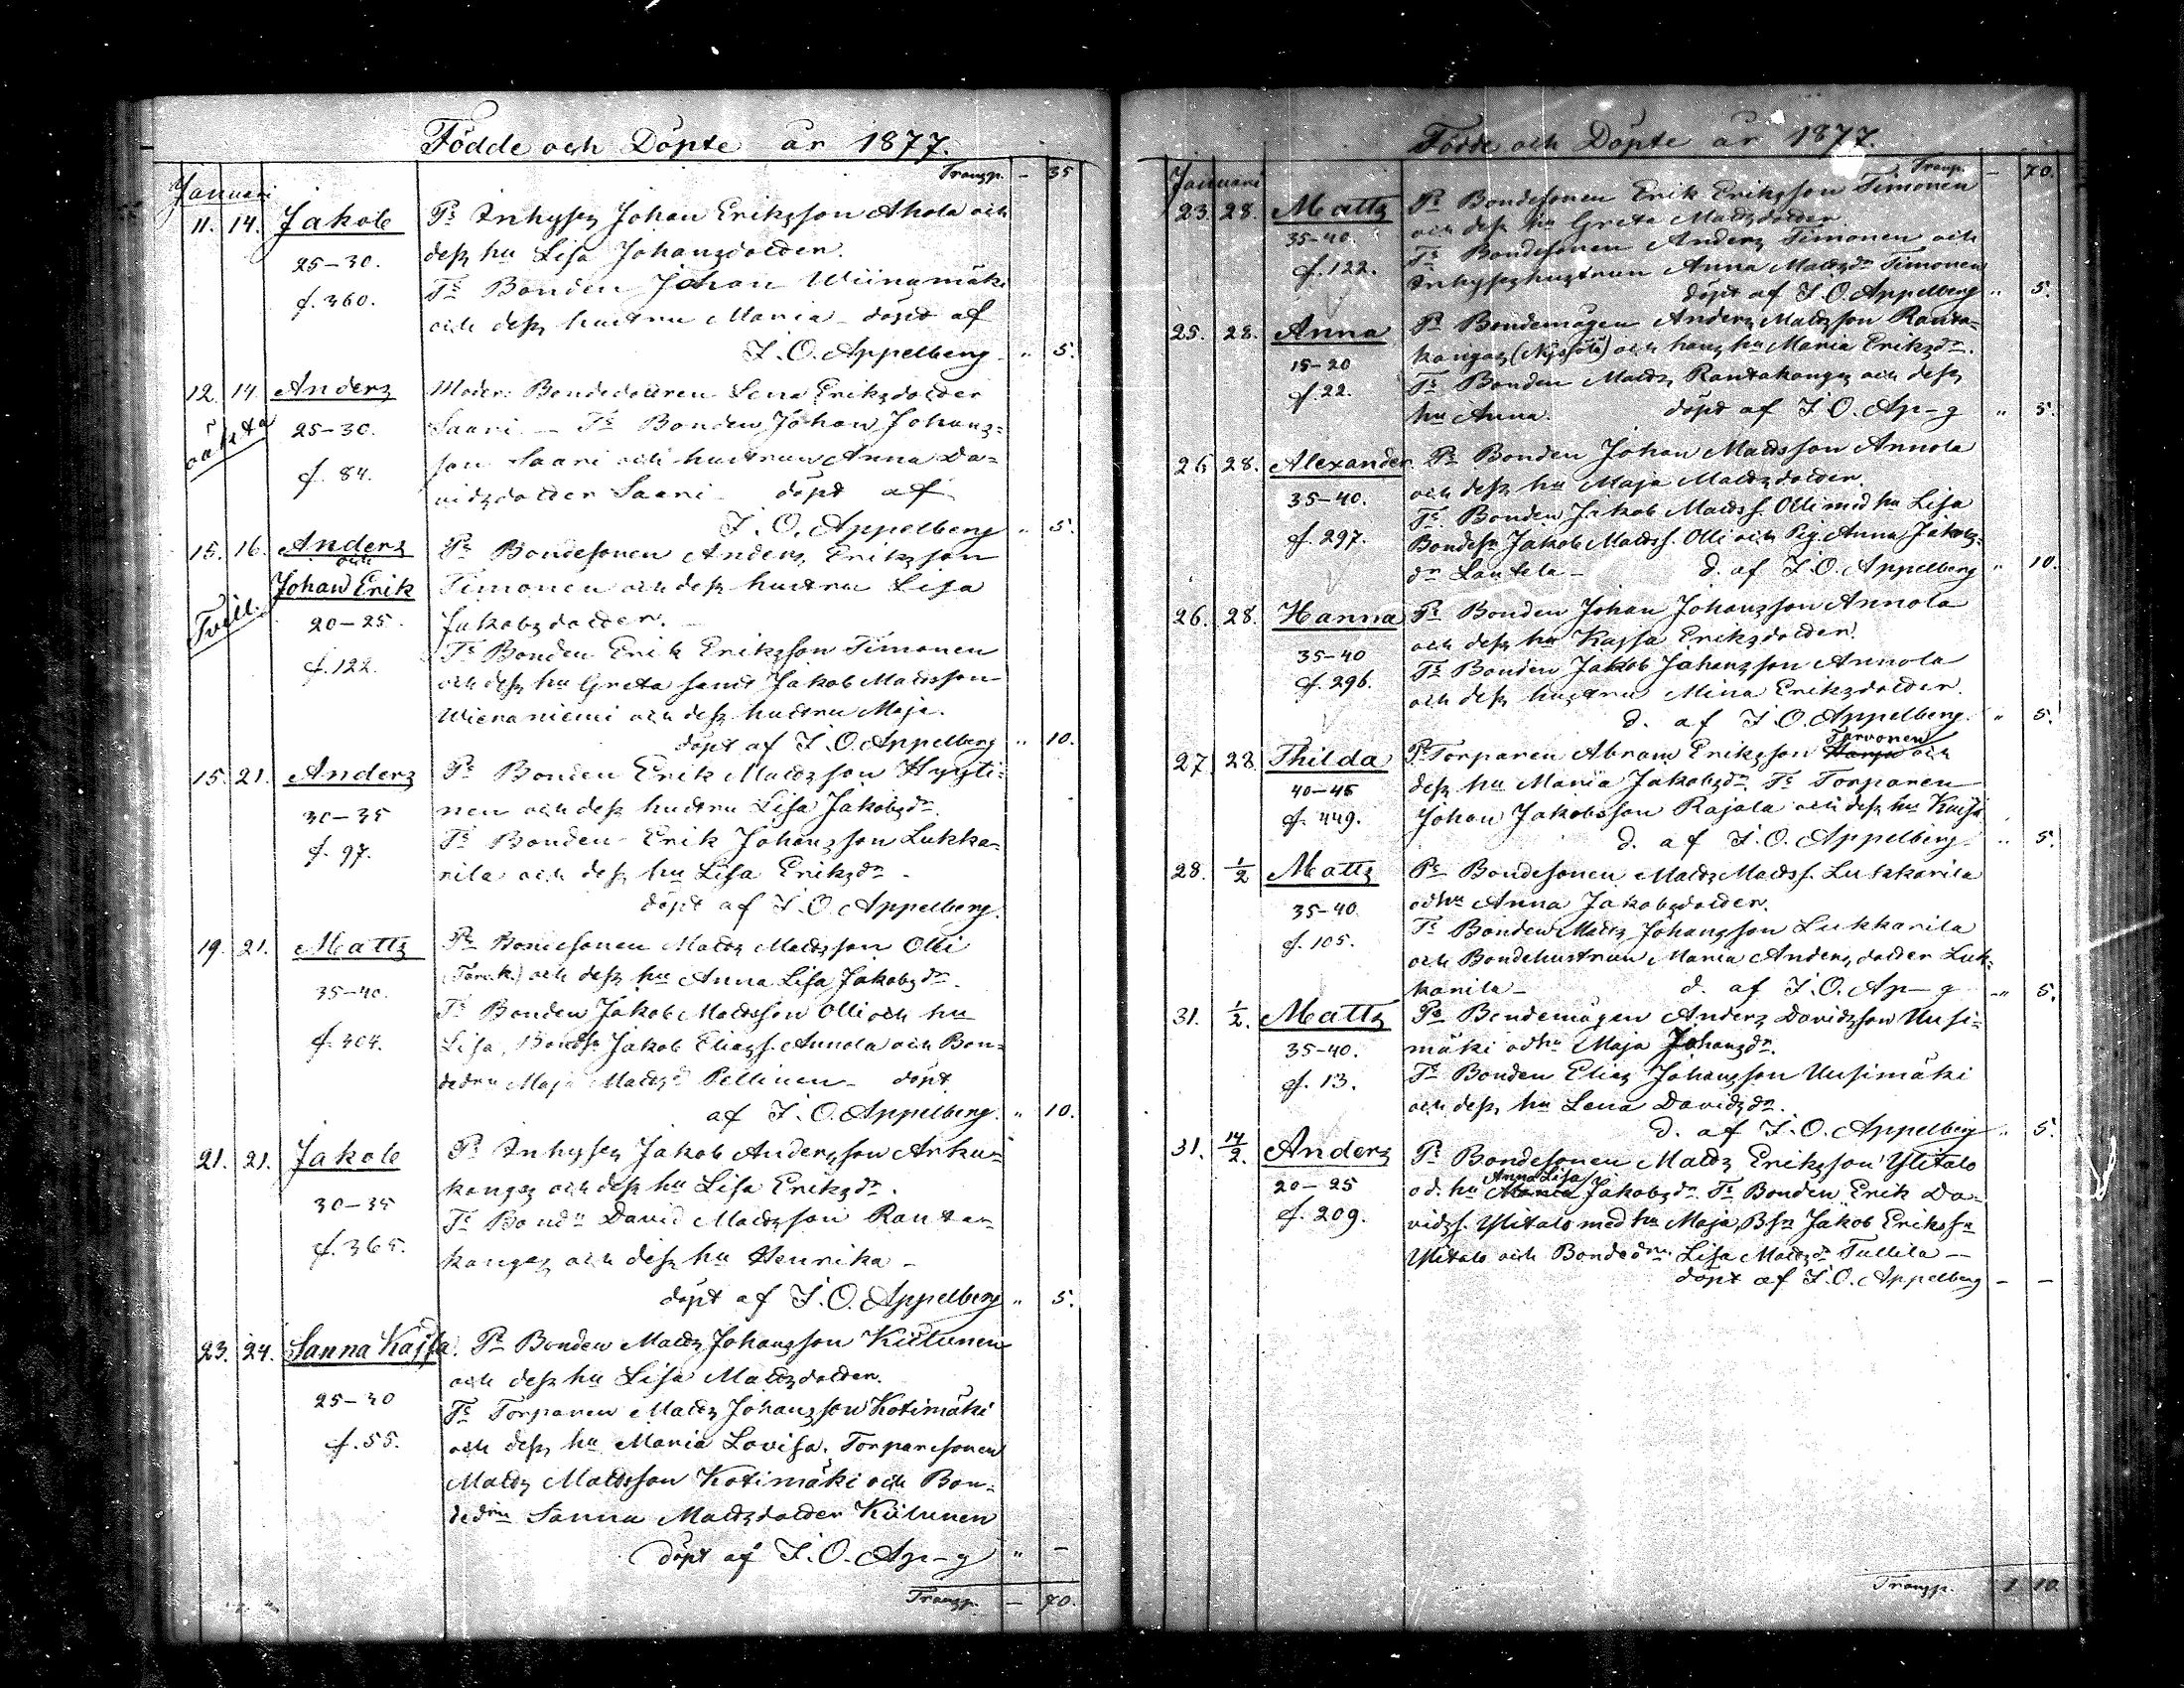 Födde och Döpte år 1877.
Transp. - 35
Januari
11. 14. Jakob Ps Inhyses Johan Eriksson Ahola och
dess hu Lisa Johansdotter.
25-30.
Ts Bonden Johan Wiinamäki
f. 360.
och dess hustru Maria - döpt af
I. O. Appelberg. " 5.
12. 14. Anders Moder: Bondedottren Lena Eriksdotter
oäkta 25-30. Saari. - Ts Bonden Johan Johans=
son Saari och hustrun Anna Da=
f. 84.
vidsdotter Saari - döpt af
I. O. Appelberg " 5.
15. 16. Anders Ps Bondesonen Anders Eriksson
och
Johan Erik Timonen och dess hustru Lisa
Tvill. 20-25. Jakobsdotter. -
Ts Bonden Erik Eriksson Timonen
f. 122.
och dess hu Greta samt Jakob Mattsson
Wienaniemi och dess hustru Maja.
döpt af I. O. Appelberg " 10.
15. 21. Anders Ps Bonden Erik Mattsson Hyyti=
30-35 nen och dess hustru Lisa Jakobsdr.
Ts Bonden Erik Johansson Lukka=
f. 97.
rila och dess hu Lisa Eriksdr -
döpt af I. O. Appelberg.
19. 21. Matts Ps Bondesonen Matts Mattsson Olli
och dess hu Anna Lisa Jakobsdr.
35-40.
Ts Bonden Jakob Mattsson Olli och hu
f. 304. Lisa, Bondsn Jakob Eliass. Annola och Bon=
dedrn Maja Mattsd Pellinen - döpt
af I. O. Appelberg. " 10.
21. 21. Jakob Ps Inhyses Jakob Andersson Arku=
kangas och dess hu Lisa Eriksdr.
30-35
Ts Bondn David Mattsson Ranta=
f. 365.
kangas och dess hu Henrika -
döpt af I. O. Appelberg " 5.
23. 24. Sanna Kajsa. Ps Bonden Matts Johansson Kiilunen
och dess hu Lisa Mattsdotter.
25-30
Ts Torparen Matts Johansson Kotimäki
f. 55. och dess hu Maria Lovisa, Torparesonen
Matts Mattsson Kotimäki och Bon=
dedrn Sanna Mattsdotter Kiilunen
döpt af I. O. Ap-g " -
Transp. - 70.
Födde och Döpte år 1877.
Transp. - 70.
Januari
23. 28. Matts Ps Bondesonen Erik Eriksson Timonen
och dess hu Greta Mattsdotter
35-40.
Ts Bondesonen Anders Timonen och
f. 122. Inhyseshustrun Anna Mattsdr Timonen
döpt af I. O. Appelberg " 5.
25. 28. Anna Ps Bondemågen Anders Mattsson Ranta=
kangas och hans hu Maria Eriksdr.
15-20
f. 22. Ts Bonden Matts Rantakangas och dess
hu Anna. döpt af I. O. Ap-g " 5.
26 28. Alexander Ps Bonden Johan Mattsson Annola
och dess hu Maja Mattsdotter.
35-40.
Ts Bonden Jakob Matts s. Olli med hu Lisa
f. 297. Bondesn Jakob Matts s. Olli och Pig. Anna Jakobs=
dr Lautela - d. af I. O. Appelberg " 10.
26. 28. Hanna Ps Bonden Johan Johansson Annola
och dess hu Kajsa Eriksdotter.
35-40
Ts Bonden Jakob Johansson Annola
f. 296.
och dess hustru Mina Eriksdotter.
d. af I. O. Appelberg. " 5.
Tarvonen
27 28 Thilda Ps Torparen Abram Eriksson och
40-45 dess hu Maria Jakobsdr. Ts Torparen
f. 449. Johan Jakobsson Rajala och dess hu Kajsa
d. af I. O. Appelberg. " 5.
28. 1/2 Matts Ps Bondesonen Matts Matts s. Lukkarila
35-40. och hu Anna Jakobsdotter.
Ts Bonden Matts Johansson Lukkarila
f. 105.
och Bondehustrun Maria Andersdotter Luk=
karila - d. af I. O. Ap-g " 5.
31. 1/2. Matts Ps Bondemågen Anders Davidsson Uusi=
35-40. mäki och hu Maja Johansdr.
f. 13. Ts Bonden Elias Johansson Uusimäki
och dess hu Lena Davidsdr.
d. af I. O. Appelberg " 5.
31. 14/2. Anders Ps Bondesonen Matts Eriksson Ylitalo
Anna Lisa
20-25 o. d. hu Maria Jakobsdr. Ts Bonden Erik Da=
f. 209. vids s. Ylitalo med hu Maja, Bsn Jakob Erikssn
Ylitalo och Bondedrn Lisa Mattsdr Tullila -
döpt af I. O. Appelberg - -
Transp. 1 10